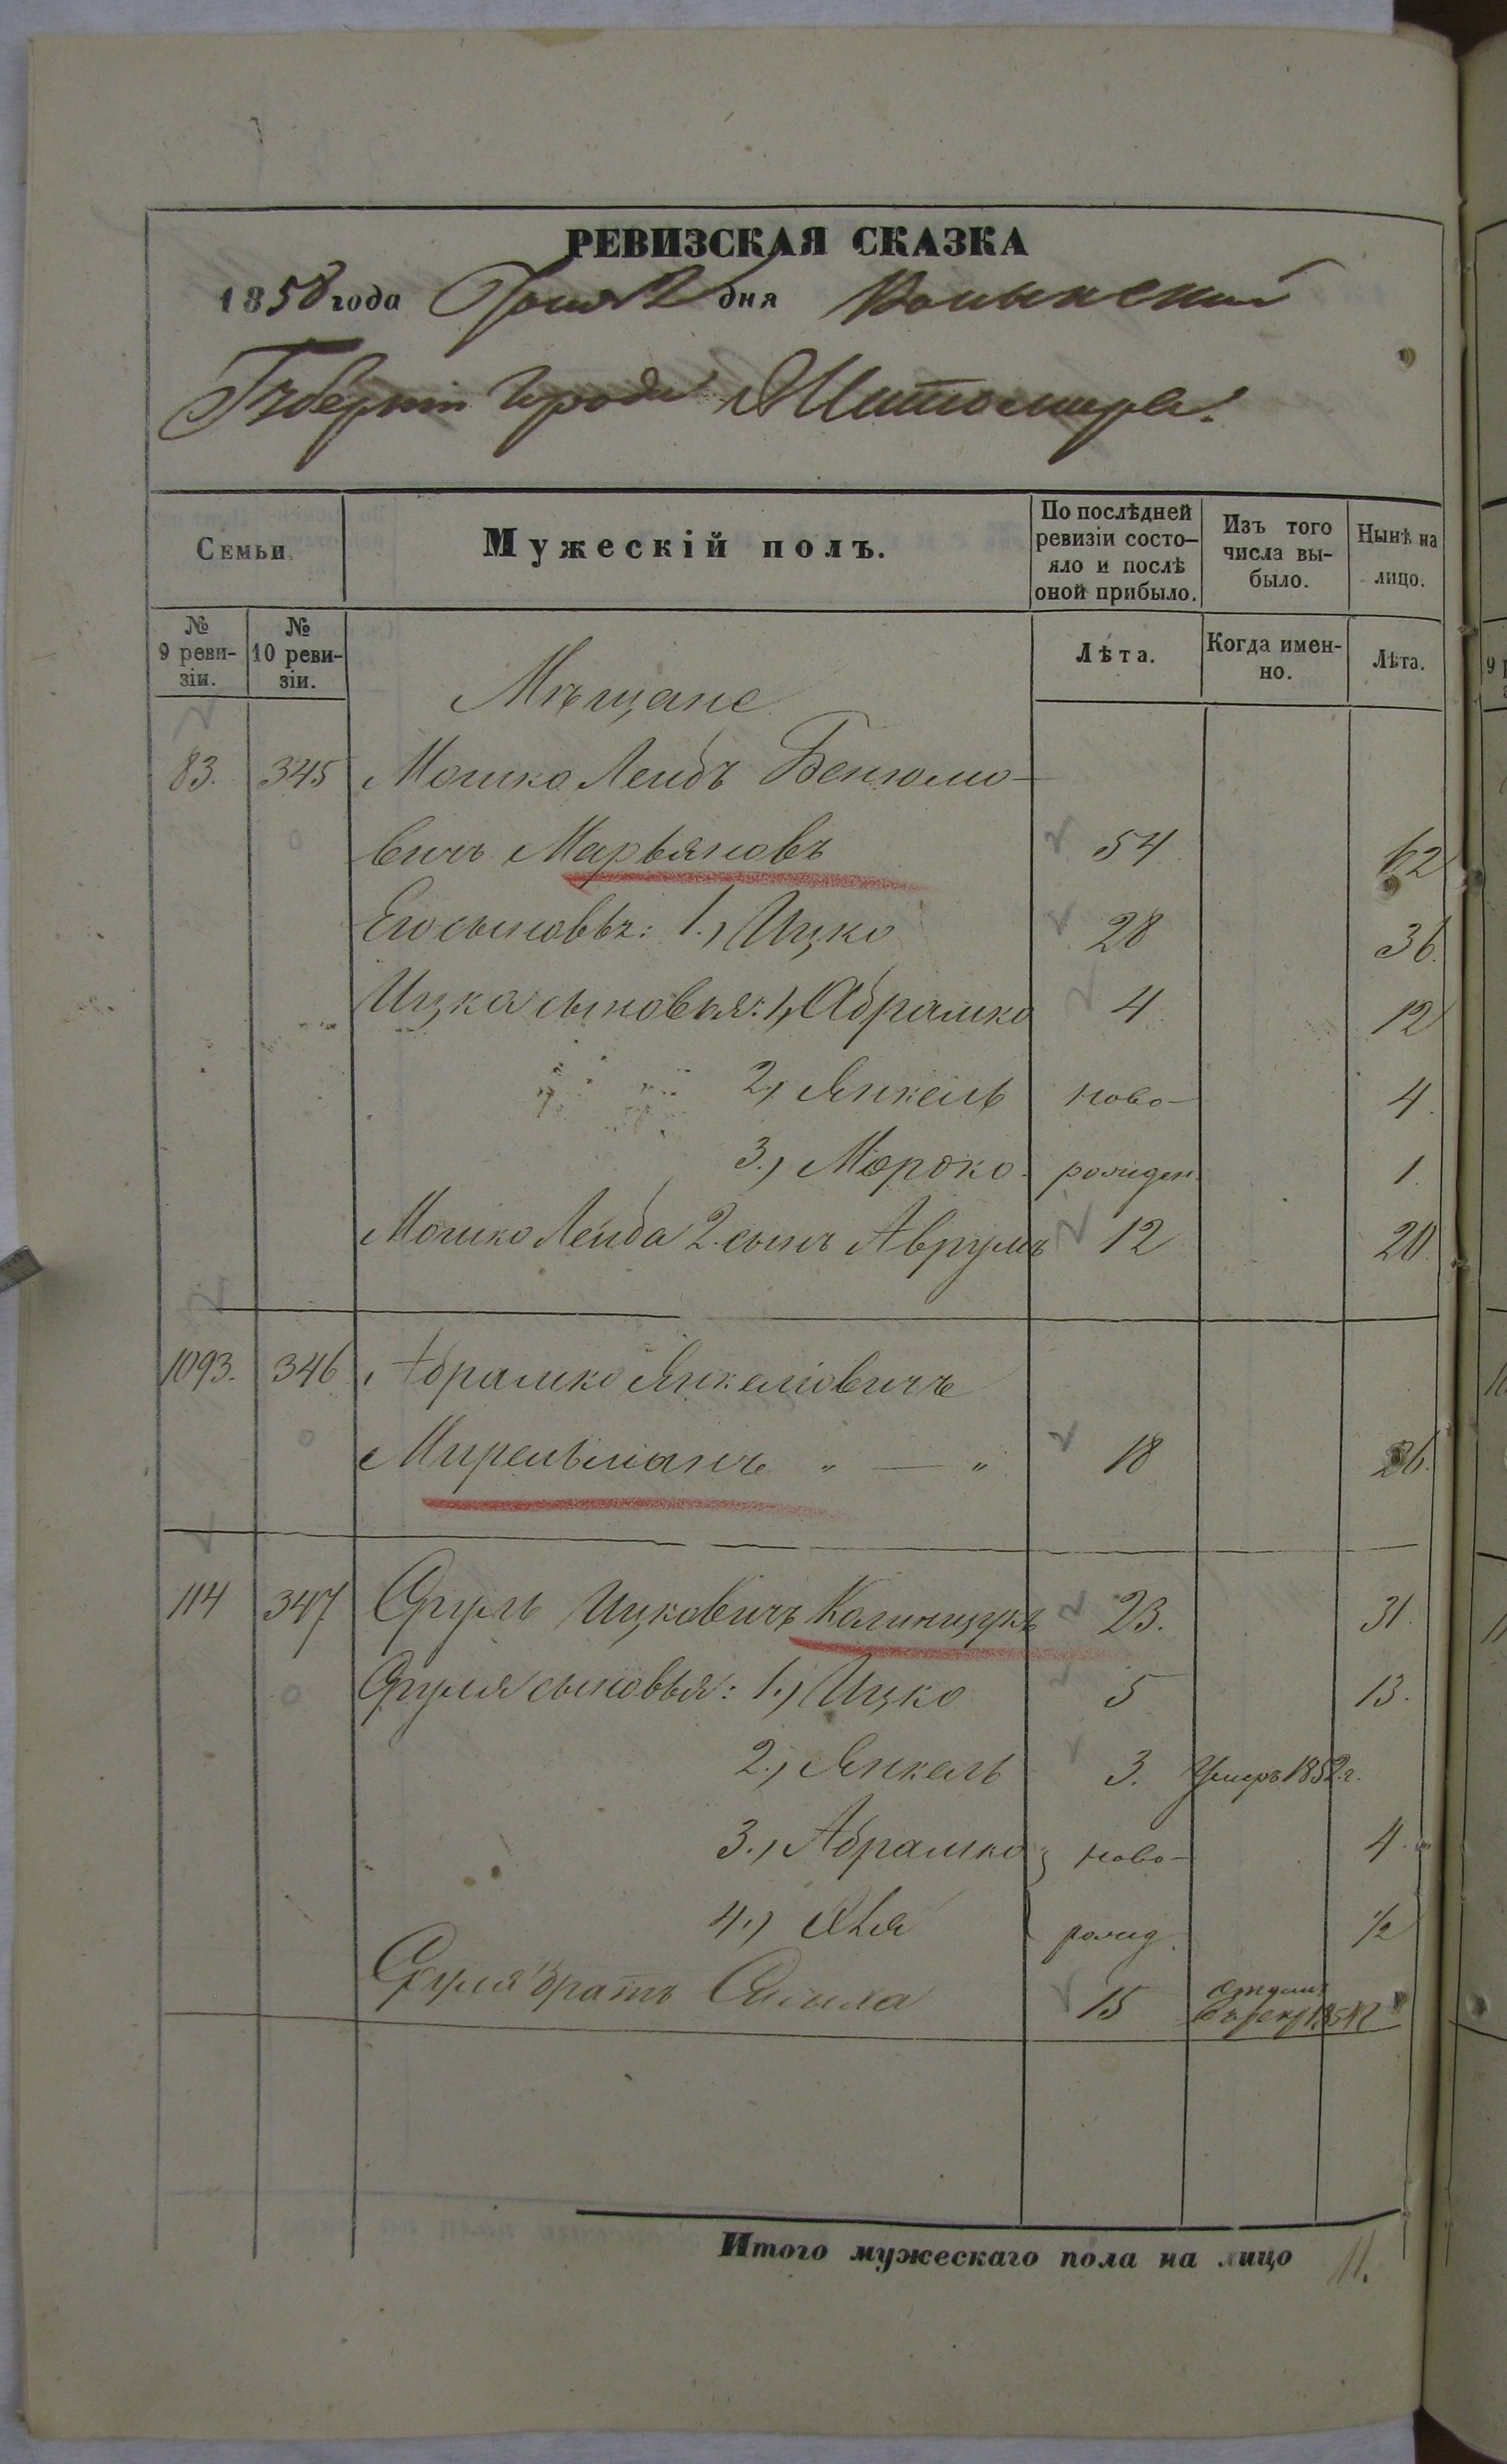 РЕВИЗСКАЯ СКАЗКА
1858 года Іюня 2 дня Волынской
Губерніи города Житомира.
Семьи. Мужескій полъ. По послѣдней ревизіи состо- Изъ того Нынѣ на
яло и послѣ числа вы- лицо.
оной прибыло. было.
№ № Лѣта. Когда имен- Лѣта.
9 реви- 10 реви- но.
зіи. зіи.
Мѣщане
83. 345 Мошко Лейбъ Бенюмо-
вичъ Марьяновъ 54 62
Его сыновья: 1., Ицко 28 36.
Ицка сыновья: 1, Абрамко 4 12
2., Янкель ново- 4.
3., Мороко рожден. 1.
Мошко Лейба 2. сынъ Аврумъ 12 20.
1093. 346 Абрамко Янкелiовичъ
Мирельманъ „ — „ 18 26.
114 347 Сруль Ицковичъ Калинщукъ 23. 31.
Сруля сыновья: 1., Ицко 5 13.
2., Янкель 3. Умеръ 1852. г.
3., Абрамко ново- 4.
4., рожд. 1/2
Сруля братъ 15
Итого мужескаго пола на лицо 11.